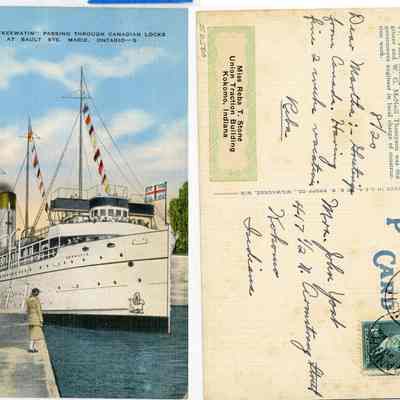 "KEEWATIN" PASSING THROUGH CANADIAN LOCKS
AT SAULT STE. MARIE, ONTARIO—5
KEEWATIN
Miss Reba T. Stone
Union Traction Building
Kokomo, Indiana
8/20
Dear Martha,:- Greetings
from Canada. Having
fine 2 weeks vacation
Reba
gineer and W. G. McNeil Thompson was the
government engineer in local charge of construc-
tion work.
Mrs. John Yost
417 1/2 N. Armstrong Street
Kokomo
Indiana
CANADA